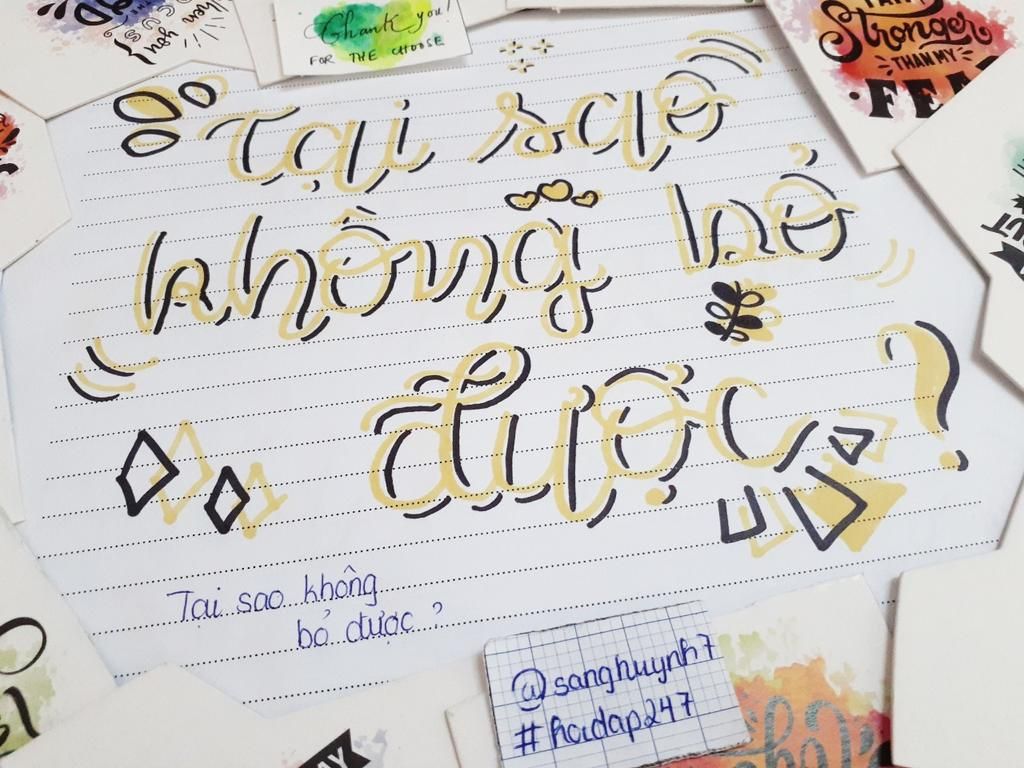 Thank you!
FOR THE CHOOSE
Stronger
THAN MY
Tại sao
không bỏ
được?
Tại sao không
bỏ được?
@sanghuynh7
#hoidap247